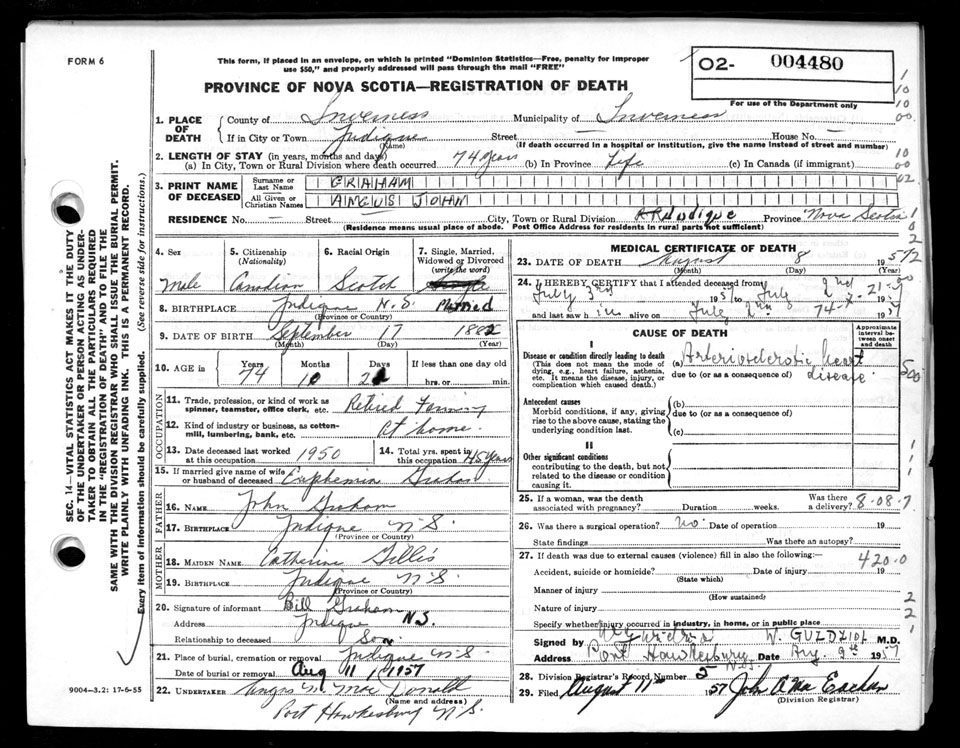 FORM 6
This form, if placed in an envelope, on which is printed "Dominion Statistics—Free, penalty for improper
use $50," and properly addressed will pass through the mail "FREE"
PROVINCE OF NOVA SCOTIA—REGISTRATION OF DEATH
02- 004480
For use of the Department only
1. PLACE OF DEATH County of Inverness Municipality of Inverness
If in City or Town Judique (Name) Street — House No. —
(If death occurred in a hospital or institution, give the name instead of street and number)
2. LENGTH OF STAY (in years, months and days)
(a) In City, Town or Rural Division where death occurred 74 years (b) In Province Life (c) In Canada (if immigrant)
3. PRINT NAME OF DECEASED Surname or Last Name GRAHAM
All Given or Christian Names ANGUS JOHN
RESIDENCE No. — Street City, Town or Rural Division Judique Province Nova Scotia
(Residence means usual place of abode. Post Office Address for residents in rural parts not sufficient)
4. Sex Male
5. Citizenship (Nationality) Canadian
6. Racial Origin Scotch
7. Single, Married, Widowed or Divorced (write the word) Married
8. BIRTHPLACE Judique N.S. (Province or Country)
9. DATE OF BIRTH September 17 1882
(Month) (Day) (Year)
10. AGE in Years Months Days If less than one day old
74 10 hrs. or min.
OCCUPATION
11. Trade, profession, or kind of work as spinner, teamster, office clerk, etc. Retired Farming
12. Kind of industry or business, as cotton-mill, lumbering, bank, etc. At home
13. Date deceased last worked at this occupation 1950
14. Total yrs. spent in this occupation 45 years
15. If married give name of wife or husband of deceased Euphemia Graham
FATHER
16. NAME John Graham
17. BIRTHPLACE Judique N.S.
(Province or Country)
MOTHER
18. MAIDEN NAME Catherine Gillis
19. BIRTHPLACE Judique N.S.
(Province or Country)
20. Signature of informant Bill Graham
Address Judique N.S.
Relationship to deceased Son
21. Place of burial, cremation or removal Judique N.S.
Date of burial or removal Aug 11, 1957
22. UNDERTAKER Angus M. MacDonald
(Name and address)
Port Hawkesbury N.S.
MEDICAL CERTIFICATE OF DEATH
23. DATE OF DEATH August 8 1957
(Month) (Day) (Year)
24. I HEREBY CERTIFY that I attended deceased from
July 3rd 1957 July 2nd
and last saw him alive on July 2nd 1957
CAUSE OF DEATH
Approximate interval between onset and death
I
Disease or condition directly leading to death (a) Arteriosclerotic heart disease
(This does not mean the mode of dying, e.g., heart failure, asthenia, etc. It means the disease, injury, or complication which caused death.)
due to (or as a consequence of)
Antecedent causes
Morbid conditions, if any, giving rise to the above cause, stating the underlying condition last.
(b)
due to (or as a consequence of)
(c)
II
Other significant conditions
contributing to the death, but not related to the disease or condition causing it.
25. If a woman, was the death associated with pregnancy? Duration weeks. Was there a delivery? 8-08.7
26. Was there a surgical operation? no. Date of operation 19
State findings Was there an autopsy?
27. If death was due to external causes (violence) fill in also the following:— 420.0
Accident, suicide or homicide? Date of injury 19
(State which)
Manner of injury
(How sustained)
Nature of injury
Specify whether injury occurred in industry, in home, or in public place
Signed by W. GUZDZIOL M.D.
Address Port Hawkesbury Date Aug. 9th 1957
28. Division Registrar's Record Number 5
29. Filed August 11th 1957 John A. MacEachen
(Division Registrar)
SEC. 14—VITAL STATISTICS ACT MAKES IT THE DUTY
OF THE UNDERTAKER OR PERSON ACTING AS UNDER-
TAKER TO OBTAIN ALL THE PARTICULARS REQUIRED
IN THE "REGISTRATION OF DEATH" AND TO FILE THE
SAME WITH THE DIVISION REGISTRAR WHO SHALL ISSUE THE BURIAL PERMIT.
WRITE PLAINLY WITH UNFADING INK. THIS IS A PERMANENT RECORD.
Every item of information should be carefully supplied. (See reverse side for instructions.)
9004-3.2: 17-6-55